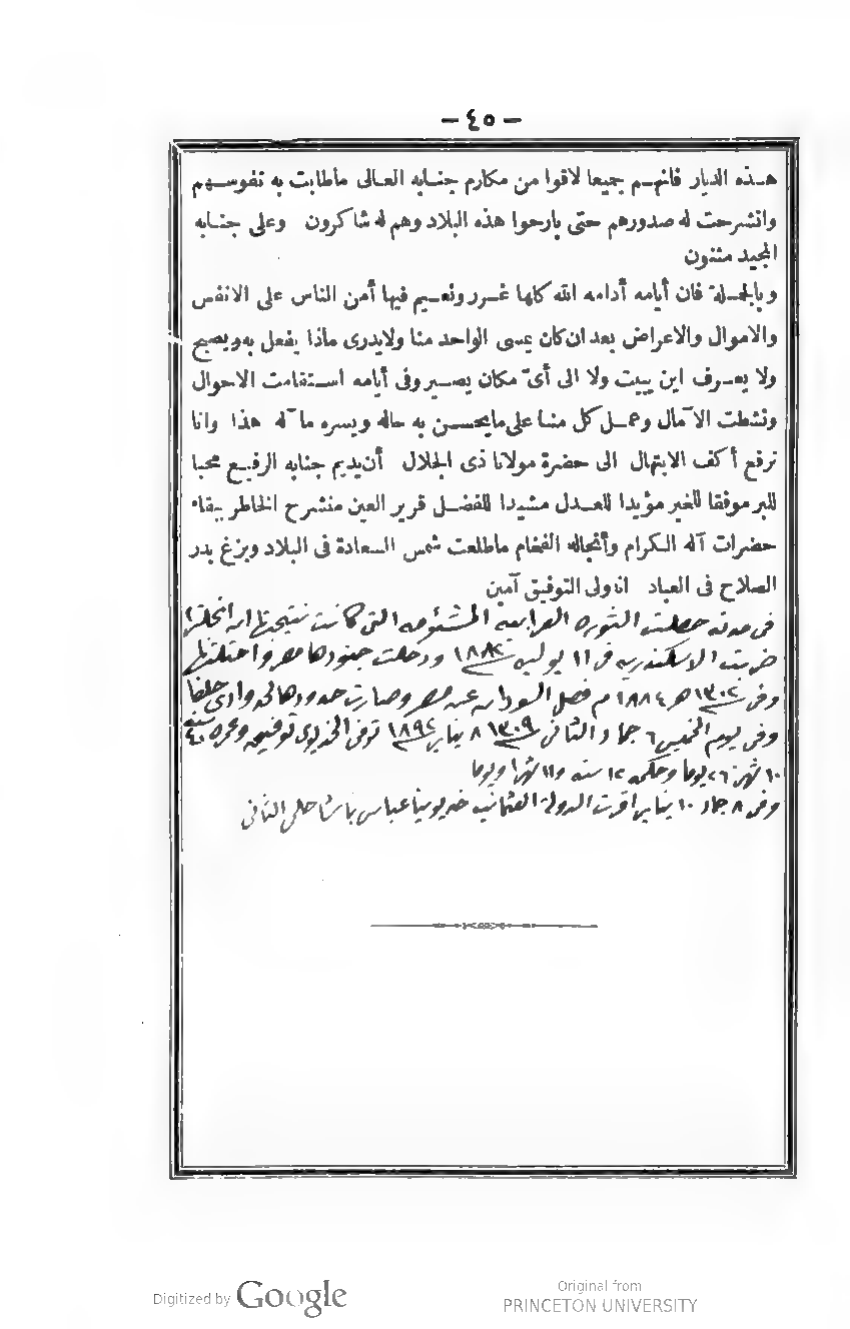 - ٤٥ -
هذه الديار فانهم جميعا لاقوا من مكارم جنابه العالى ماطابت به نفوسهم
وانشرحت له صدورهم حتى بارحوا هذه البلاد وهم له شاكرون وعلى جنابه
المجيد مثنون
وبالجملة فان أيامه أدامه الله كلها غرر ونعيم فيها أمن الناس على الانفس
والاموال والاعراض بعد ان كان يمسى الواحد منا ولايدرى ماذا يفعل به ويصبح
ولا يعرف اين يبيت ولا الى أىّ مكان يصير وفى أيامه استقامت الاحوال
ونشطت الآمال وعمل كل منا على مايحسن به حاله ويسره مآله هذا وانا
نرفع أكف الابتهال الى حضرة مولانا ذى الجلال أن يديم جنابه الرفيع محبا
للبر موفقا للخير مؤيدا للعدل مشيدا للفضل قرير العين منشرح الخاطر ببقاء
حضرات آله الكرام وأنجاله الفخام ماطلعت شمس السعادة فى البلاد وبزغ بدر
الصلاح فى العباد انه ولى التوفيق آمين
فى مدته حصلت الثوره العرابية المشئومه التى كانت نتيجتها ان انجلترا
ضربت الاسكندريه فى ١١ يوليه ١٨٨٢ ودخلت جنودها مصر واحتلتها
وفى ١٣٠٢ هـ ١٨٨٤ م فصل السودان عن مصر وصارت حدودها لحد وادى حلفا
وفى يوم الخميس ٦ جماد الثانى ١٣٠٩ ٨ يناير ١٨٩٢ توفى الخديوى توفيق وعمره ٤٠ سنه
١٠ شهر ٢٦ يوما وحكمه ١٢ سنه و١١ شهرا ويوما
وفى ٨ جماد ١٠ يناير اقرت الدولة العثمانيه خديوينا عباس باشا حلمى الثانى
Digitized by Google
Original from
PRINCETON UNIVERSITY